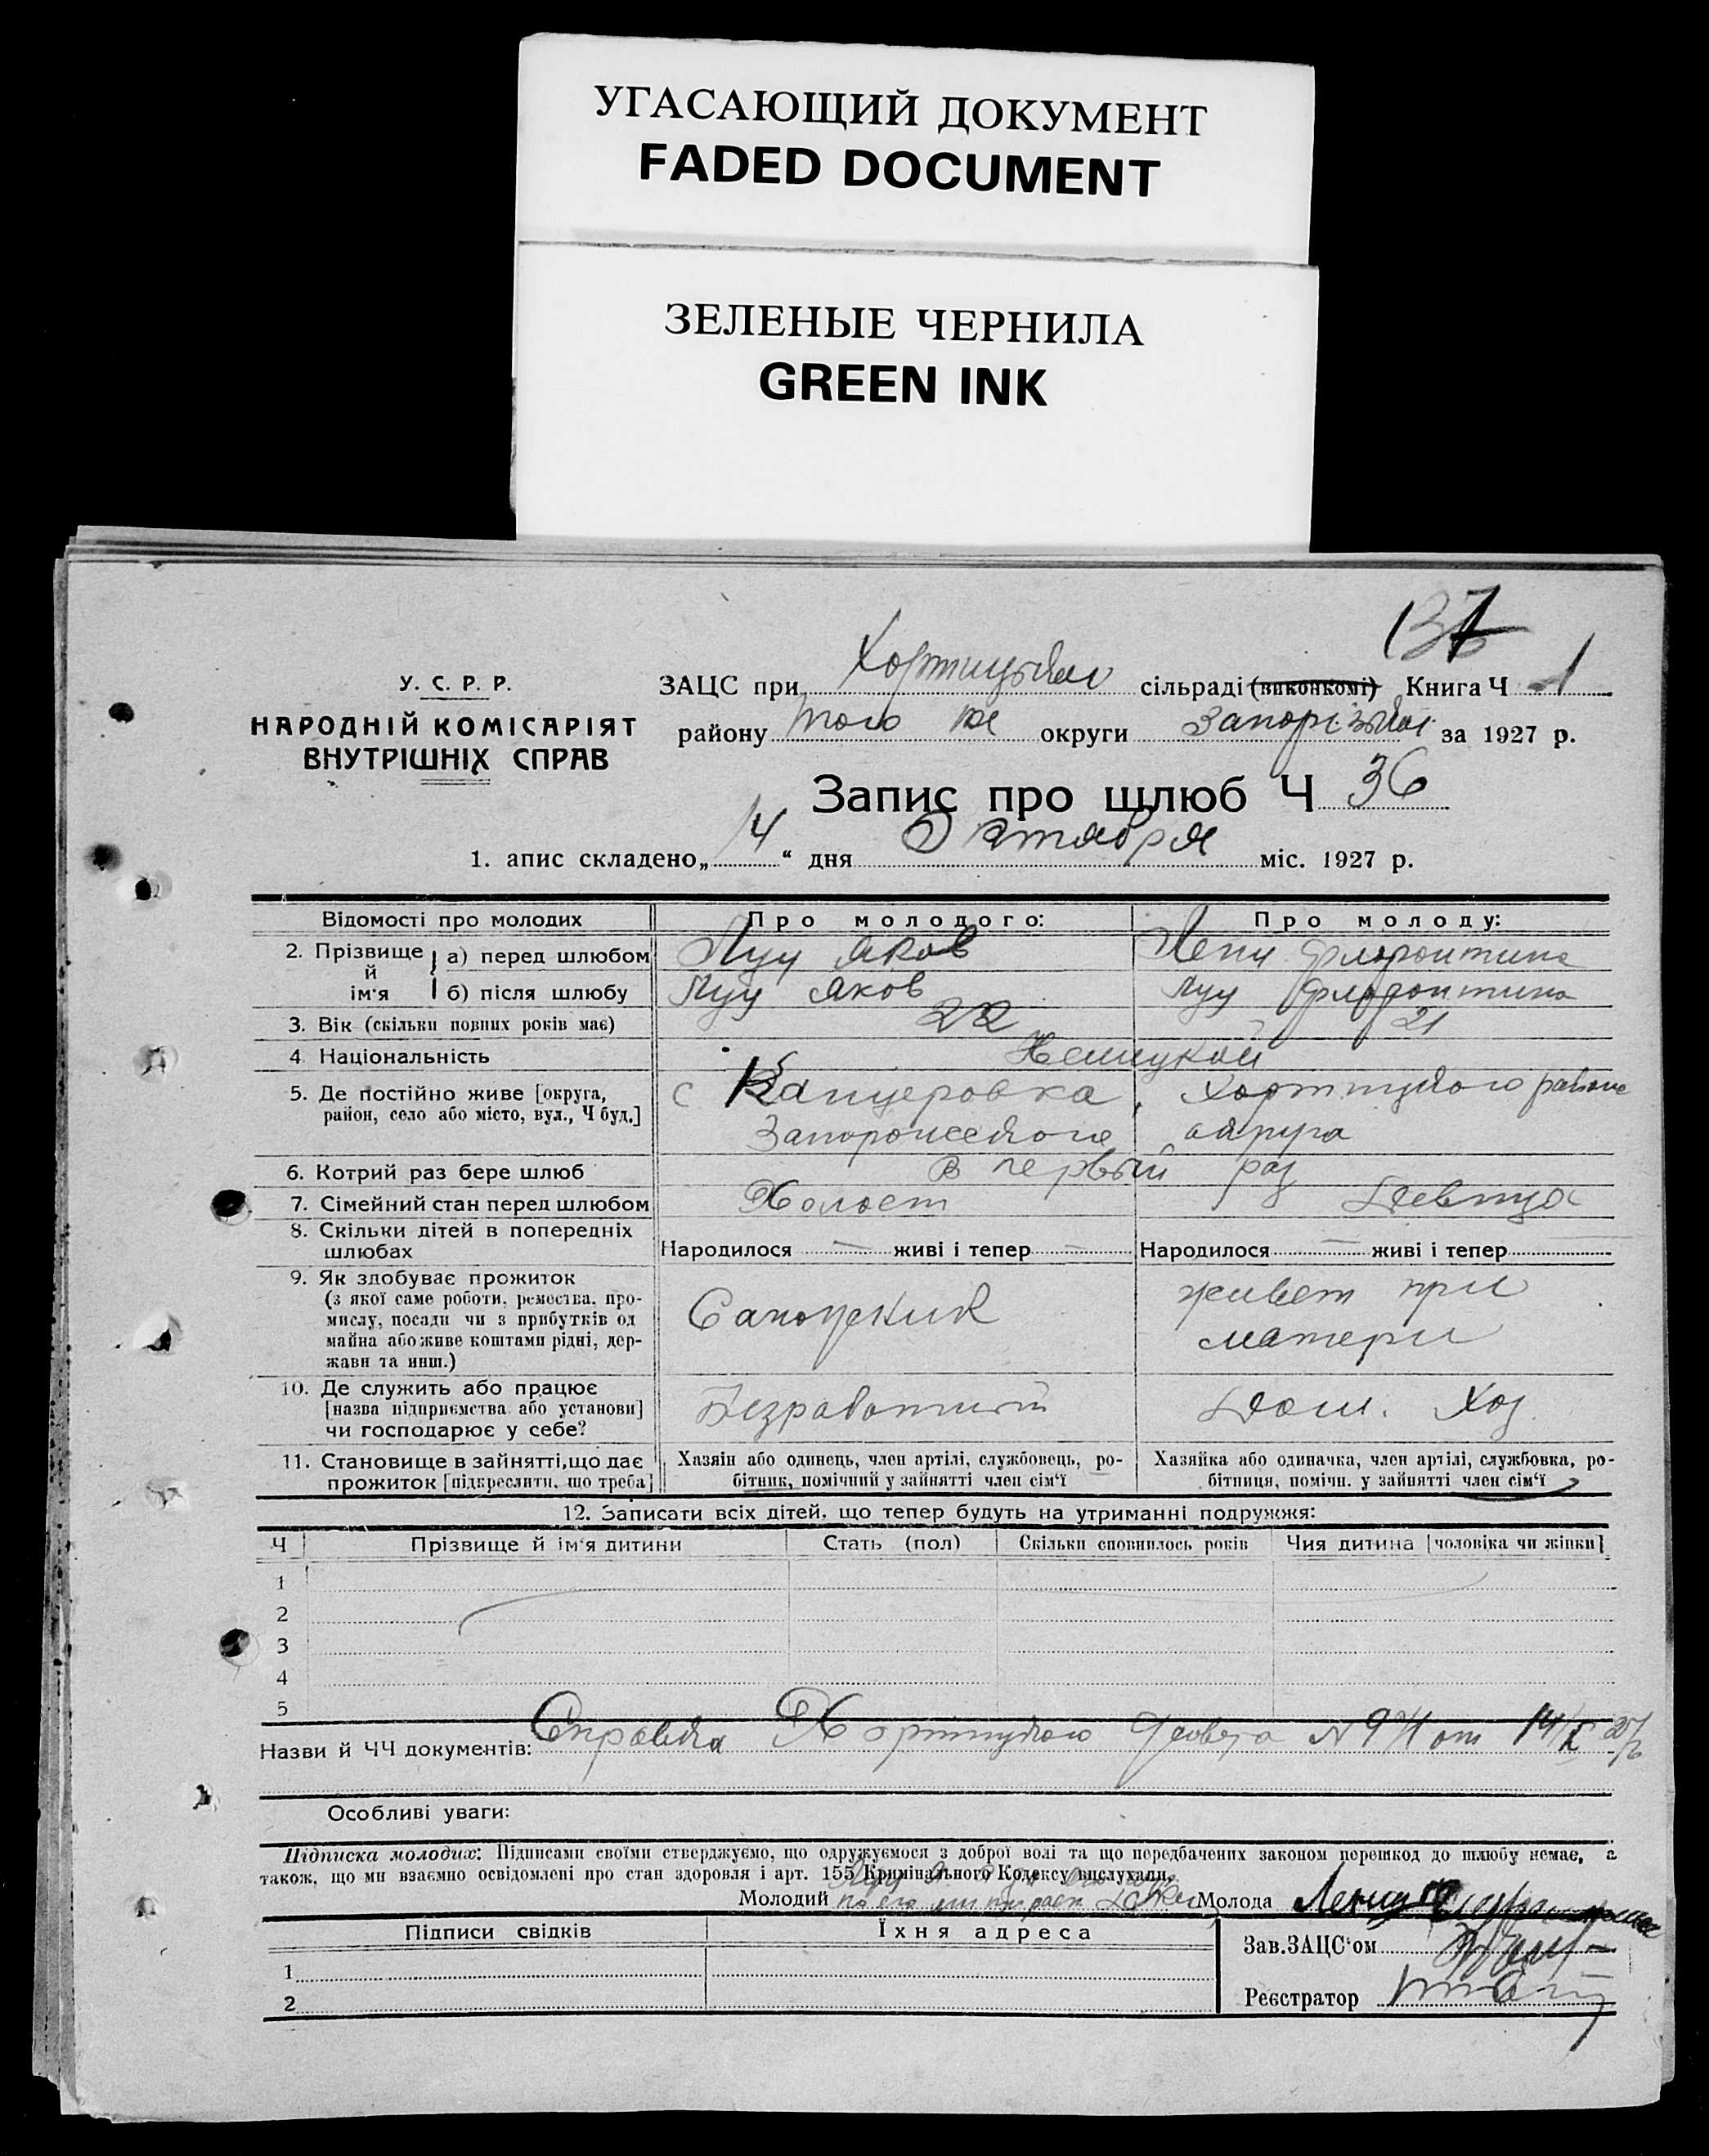 УГАСАЮЩИЙ ДОКУМЕНТ
FADED DOCUMENT
ЗЕЛЕНЫЕ ЧЕРНИЛА
GREEN INK
У. С. Р. Р.
НАРОДНІЙ КОМІСАРІЯТ
ВНУТРІШНІХ СПРАВ
ЗАЦС при Хортицьком сільраді (виконкомі) Книга Ч 1
району того же округи Запорізькой за 1927 р.
Запис про шлюб Ч 36
1. апис складено „14“ дня Октября міс. 1927 р.
Відомості про молодих Про молодого: Про молоду:
2. Прізвище й ім'я а) перед шлюбом Яков
б) після шлюбу Яков
3. Вік (скільки повних років має) 22 21
4. Національність Немецкой
5. Де постійно живе [округа, район, село або місто, вул., Ч буд.] с Канцеровка, Хортицкого района
Запорожского округа
6. Котрий раз бере шлюб В первый раз
7. Сімейний стан перед шлюбом Холост Девица
8. Скільки дітей в попередніх шлюбах Народилося — живі і тепер — Народилося — живі і тепер
9. Як здобуває прожиток
(з якої саме роботи, ремества, промислу, посади чи з прибутків од майна або живе коштами рідні, держави та инш.) Сапожник живет при матери
10. Де служить або працює
[назва підприємства або установи]
чи господарює у себе? Безработный Дом. Хоз.
11. Становище в зайнятті, що дає прожиток [підкреслити, що треба] Хазяін або одинець, член артілі, службовець, робітник, помічний у зайнятті член сім'ї Хазяйка або одиначка, член артілі, службовка, робітниця, помічн. у зайнятті член сім'ї
12. Записати всіх дітей, що тепер будуть на утриманні подружжя:
Ч Прізвище й ім'я дитини Стать (пол) Скільки сповнилось років Чия дитина [чоловіка чи жінки]
1
2
3
4
5
Назви й ЧЧ документів: Справка Хортицкого от 14/X 27
Особливі уваги:
Підписка молодих: Підписами своїми стверджуємо, що одружуємося з доброї волі та що передбачених законом перешкод до шлюбу немає, а
також, що ми взаємно освідомлені про стан здоровля і арт. 155 Кримінального Кодексу вислухали.
Молодий Молода
Підписи свідків Їхня адреса
Зав.ЗАЦС'ом
1
Реєстратор
2